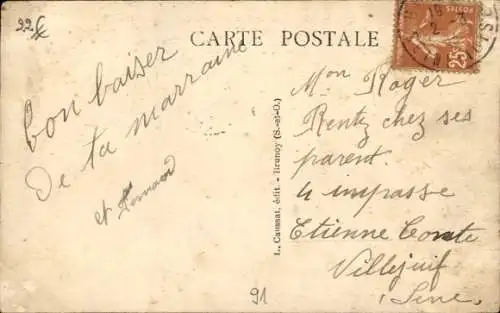 22 €
CARTE POSTALE
bon baiser
De ta marraine
et Fernand
L. Caussat, édit. - Brunoy (S.-et-O.)
Mon Roger
Rentez chez ses
parent.
4 impasse
Etienne Comte
Villejuif
Seine.
POSTES
25c
91